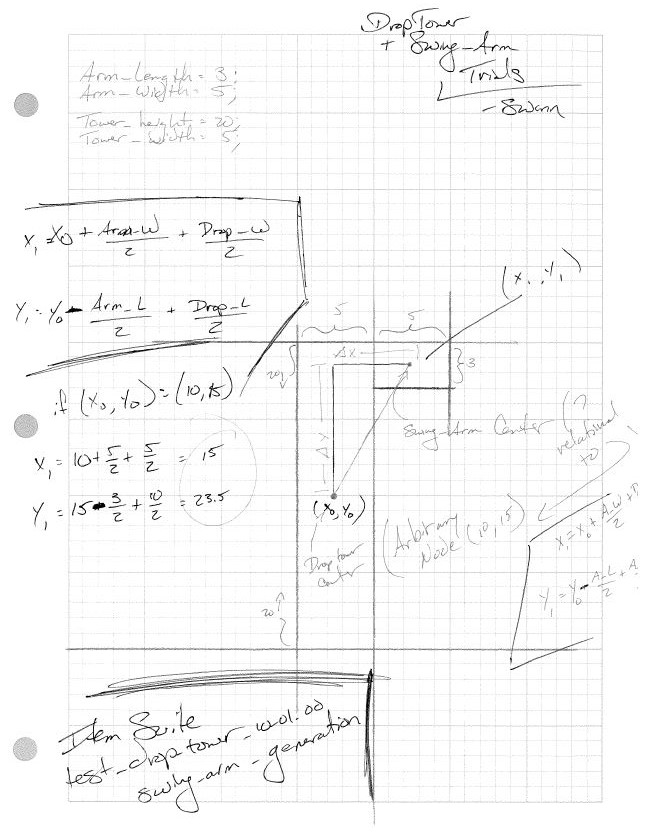 Drop Tower
+ Swing-Arm
Trials
- Swann
Arm_Length = 3;
Arm_Width = 5;
Tower_height = 20;
Tower_width = 5;
X₁ = X₀ + Arm_W/2 + Drop_W/2
Y₁ = Y₀ - Arm_L/2 + Drop_L/2
if (X₀, Y₀) = (10, 15)
X₁ = 10 + 5/2 + 5/2 = 15
Y₁ = 15 - 3/2 + 10/2 = 23.5
(X₁, Y₁)
5
5
ΔX
3
20
Swing-Arm Center (?
relational
to
ΔY
(X₀, Y₀)
Drop tower
center
(Arbitrary
Node (10, 15)
X₁ = X₀ + A_W/2 +
Y₁ = Y₀ - A_L/2 + A
20
Item Suite
test_drop_tower_w01.00
swing_arm_generation